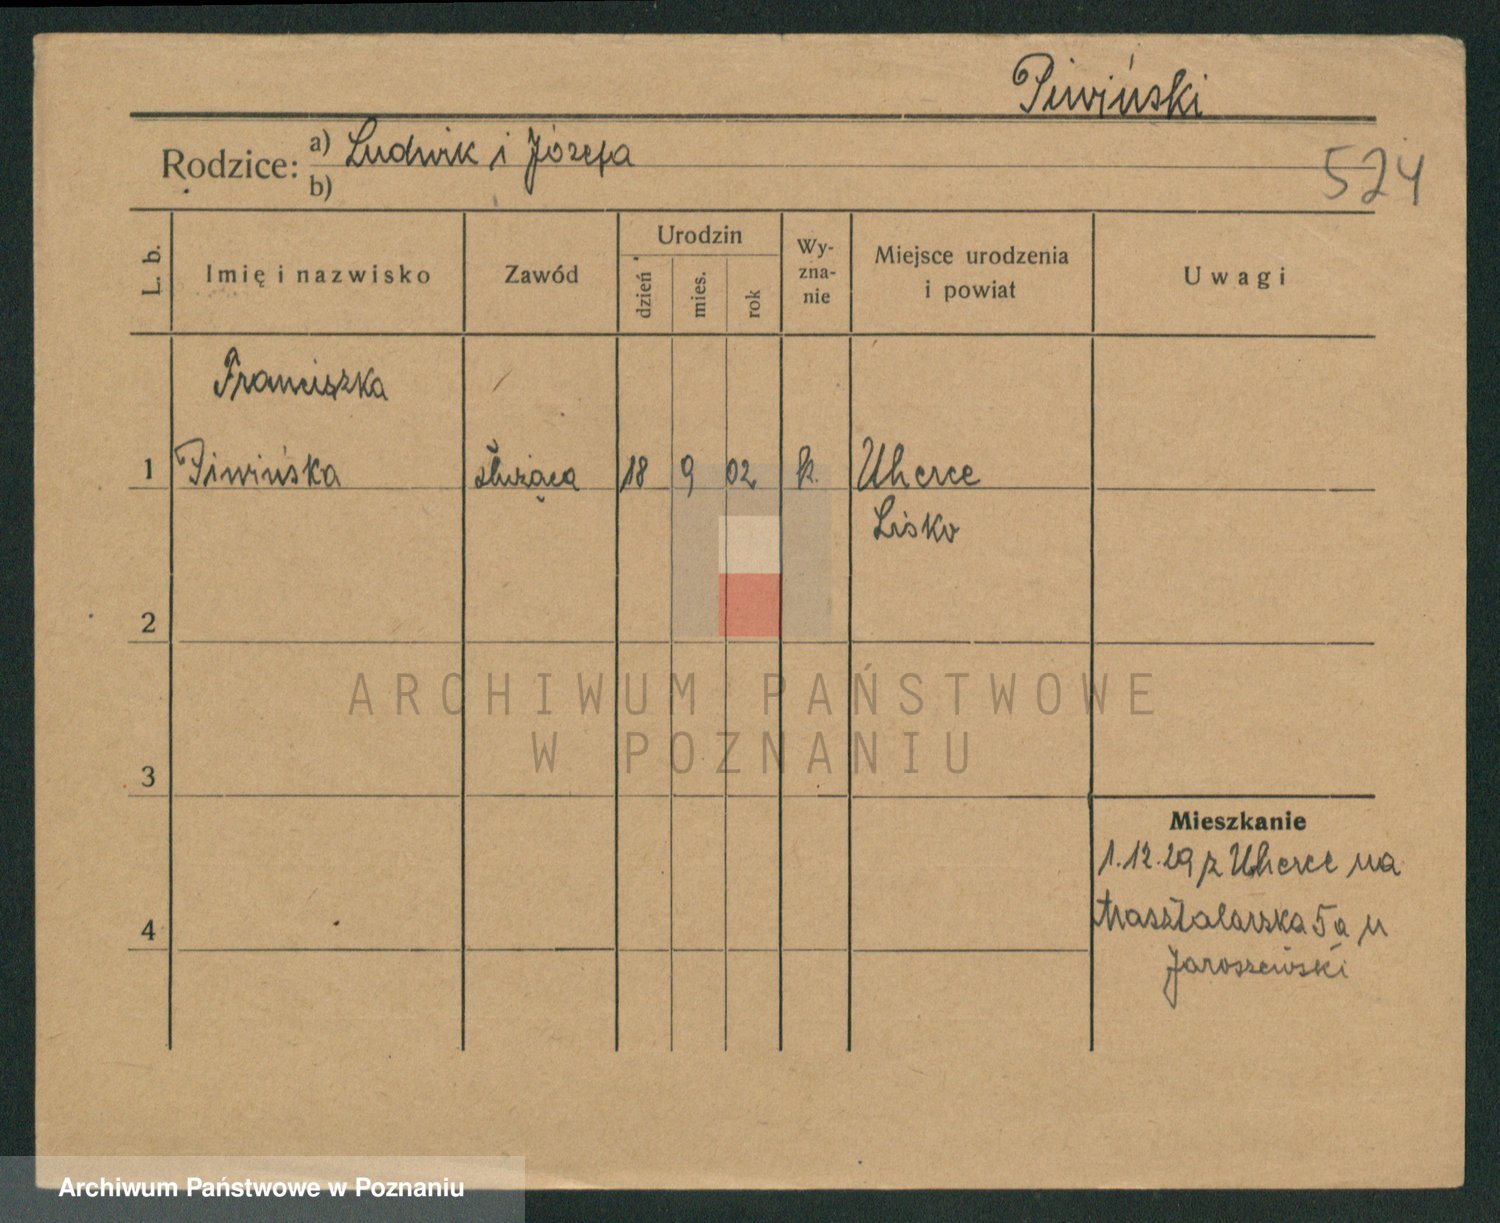 Piwiński
Rodzice: a) Ludwik i Józefa
b)
524
L. b.
Imię i nazwisko
Zawód
Urodzin
dzień
mies.
rok
Wy-
zna-
nie
Miejsce urodzenia
i powiat
Uwagi
Franciszka
1 Piwińska służąca 18 9 02 k. Uherce
Lisko
2
3
4
Mieszkanie
1.12.29 z Uherce na
Masztalarska 5a u
Jaroszewski
ARCHIWUM PAŃSTWOWE
W POZNANIU
Archiwum Państwowe w Poznaniu